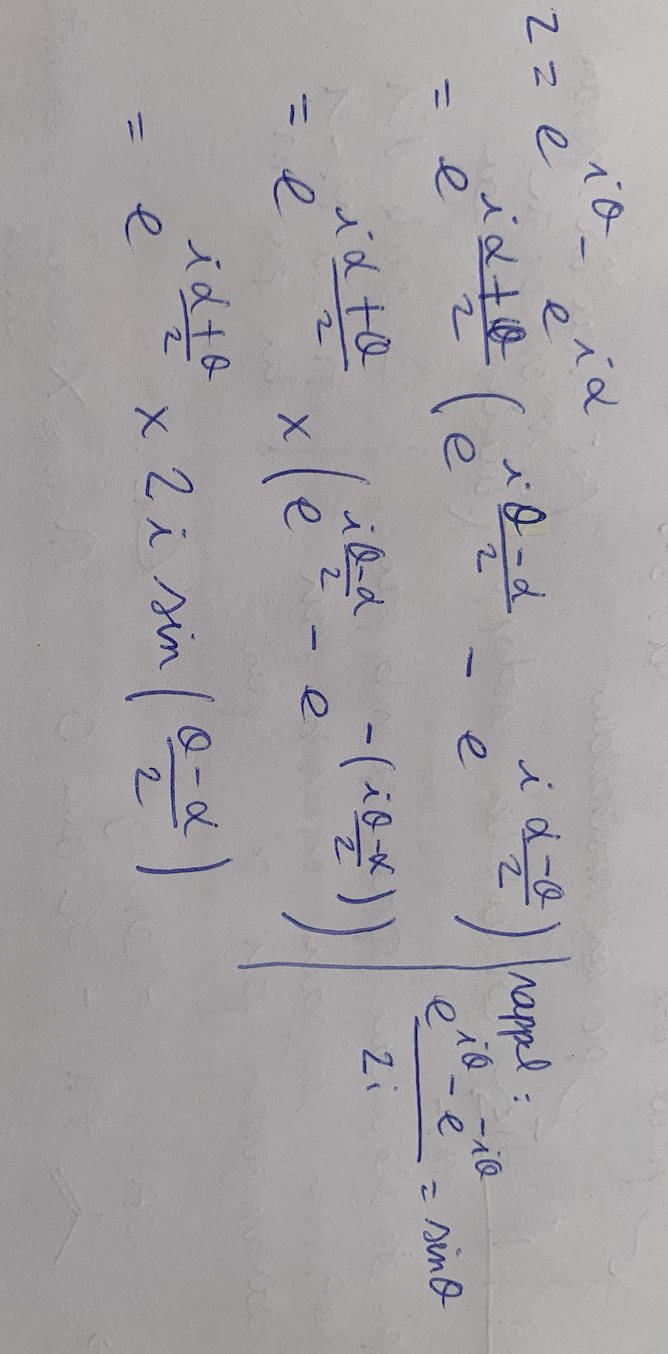 z = e^{iθ} - e^{iα}
= e^{i\frac{α+θ}{2}} (e^{i\frac{θ-α}{2}} - e^{i\frac{α-θ}{2}})
= e^{i\frac{α+θ}{2}} × (e^{i\frac{θ-α}{2}} - e^{-(i\frac{θ-α}{2})})
= e^{i\frac{α+θ}{2}} × 2i sin(\frac{θ-α}{2})
rappel :
\frac{e^{iθ} - e^{-iθ}}{2i} = sinθ